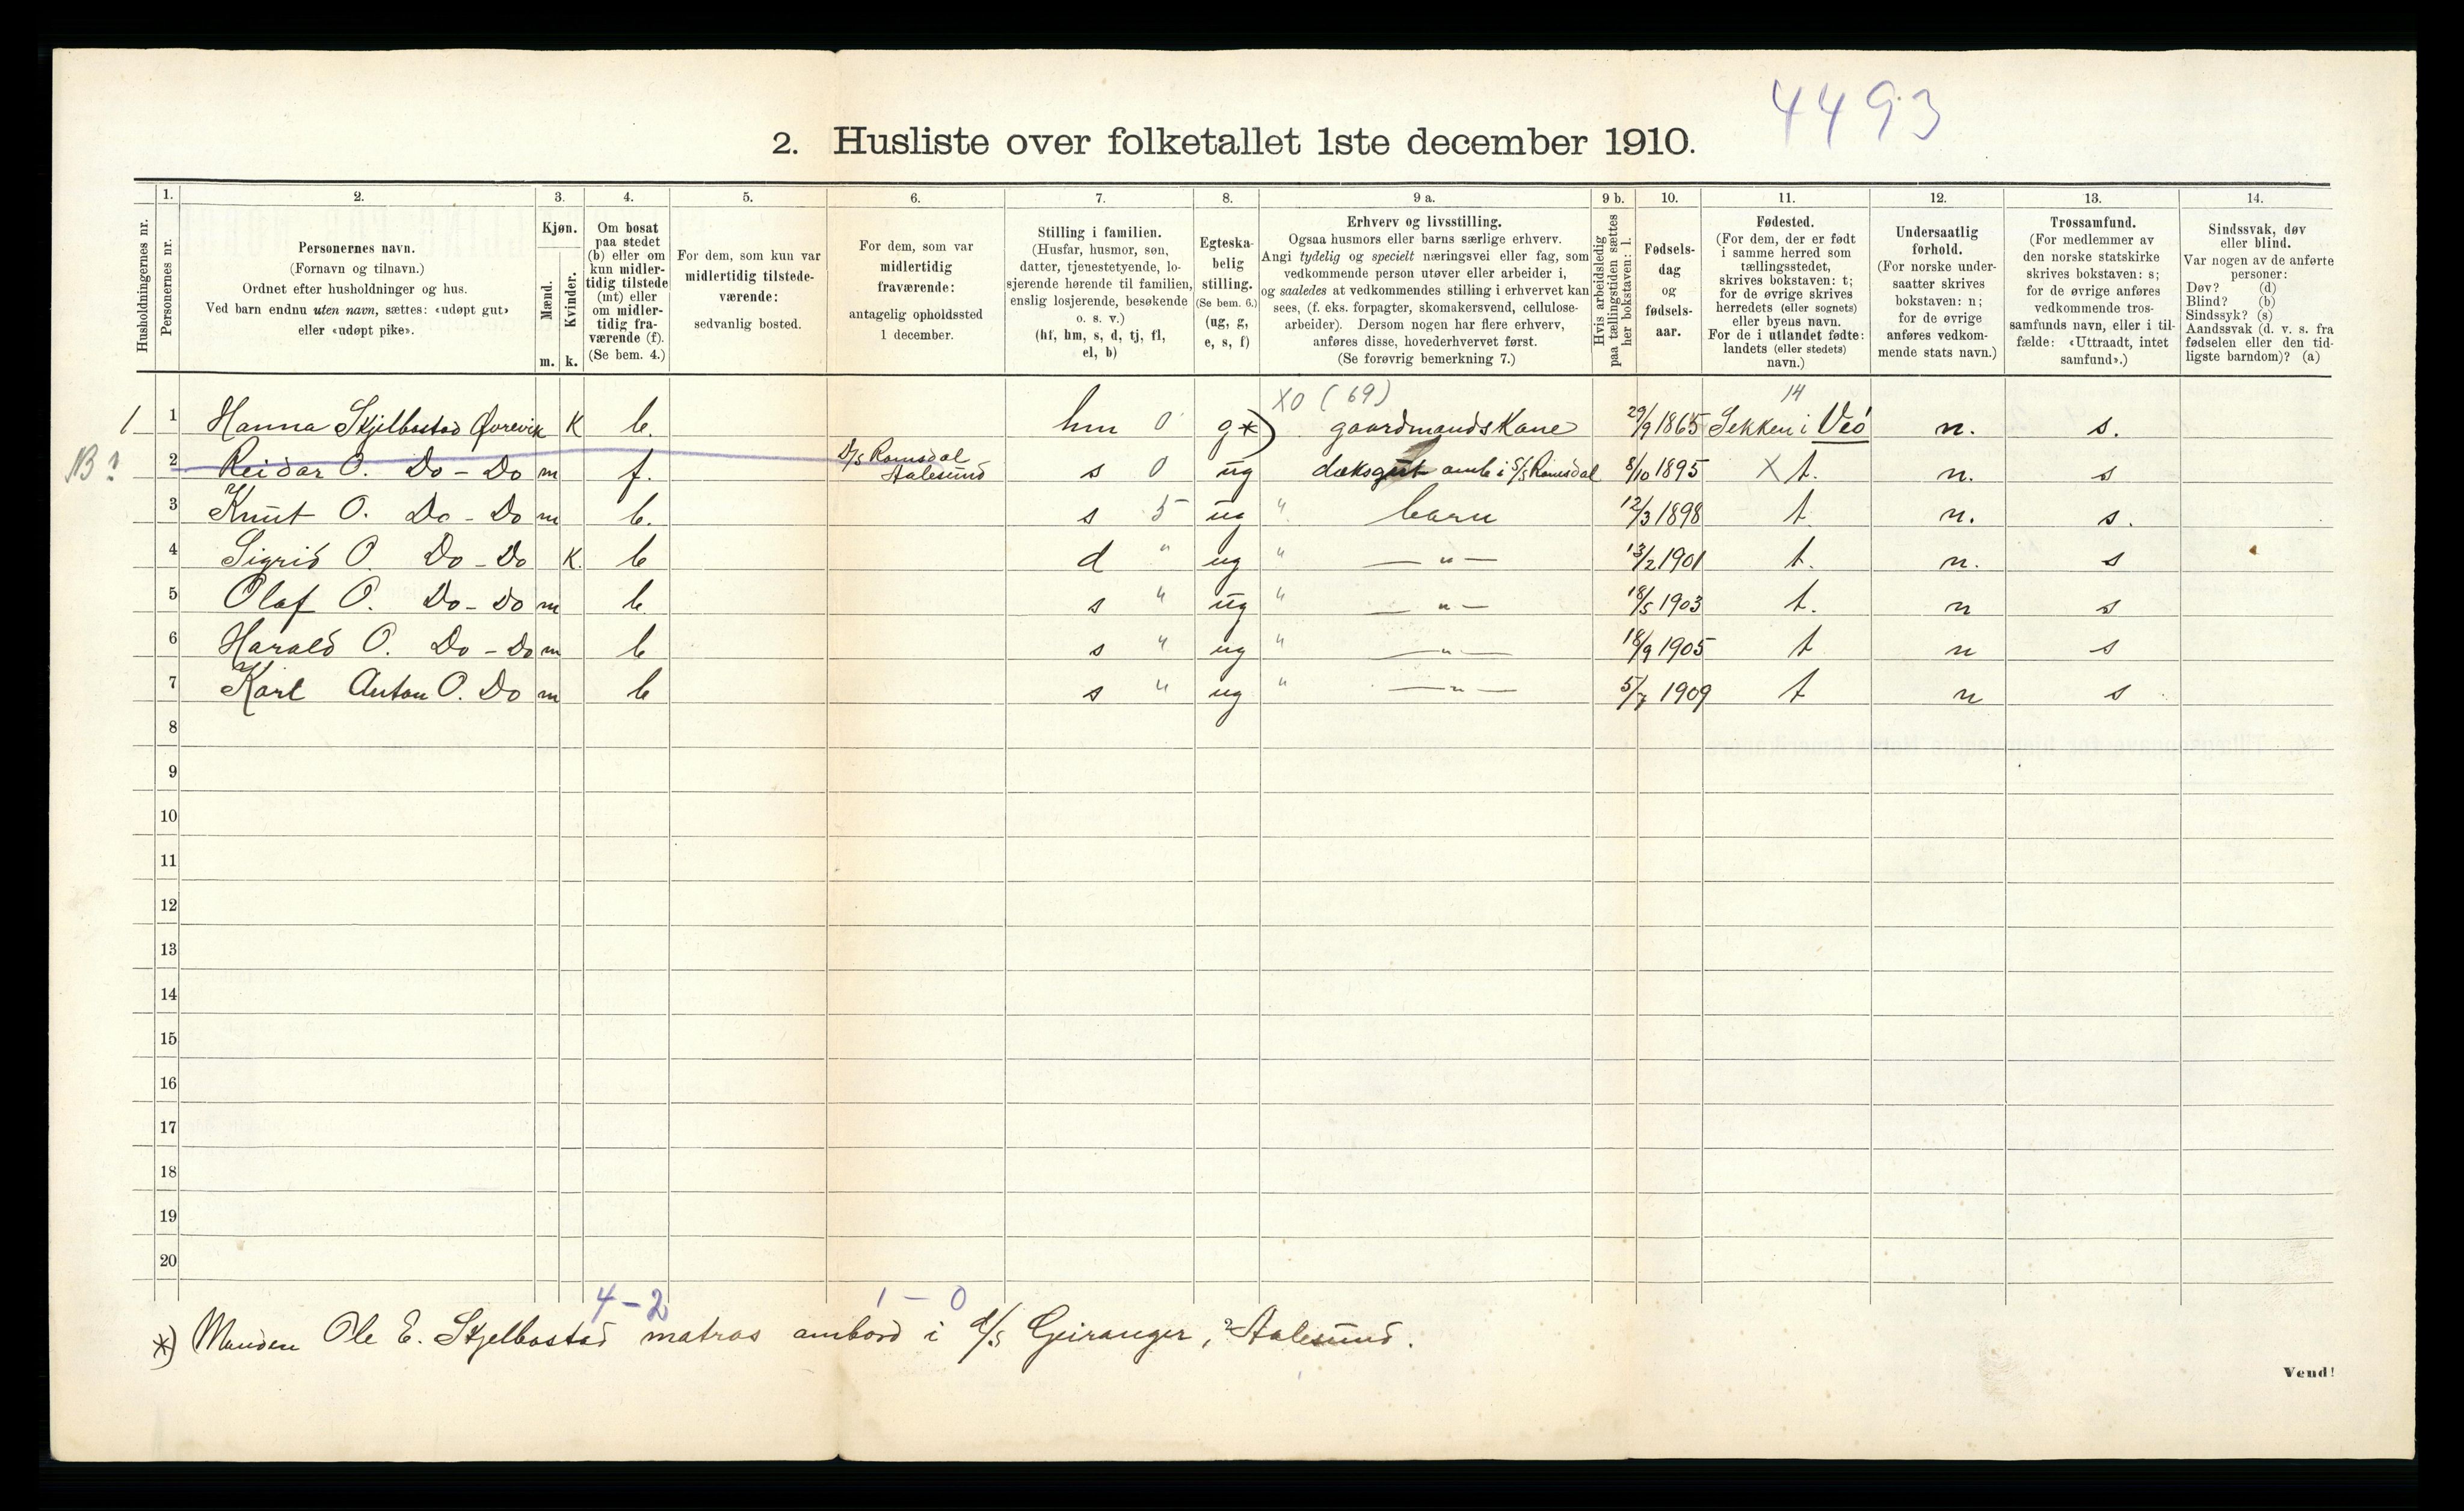 4493
2. Husliste over folketallet 1ste december 1910.
Husholdningernes nr.
1.
Personernes nr.
2.
Personernes navn.
(Fornavn og tilnavn.)
Ordnet efter husholdninger og hus.
Ved barn endnu uten navn, sættes: «udøpt gut»
eller «udøpt pike».
3.
Kjøn.
Mænd.
Kvinder.
m. k.
4.
Om bosat
paa stedet
(b) eller om
kun midler-
tidig tilstede
(mt) eller
om midler-
tidig fra-
værende (f).
(Se bem. 4.)
5.
For dem, som kun var
midlertidig tilstede-
værende:
sedvanlig bosted.
6.
For dem, som var
midlertidig
fraværende:
antagelig opholdssted
1 december.
7.
Stilling i familien.
(Husfar, husmor, søn,
datter, tjenestetyende, lo-
sjerende hørende til familien,
enslig losjerende, besøkende
o. s. v.)
(hf, hm, s, d, tj, fl,
el, b)
8.
Egteska-
belig
stilling.
(Se bem. 6.)
(ug, g,
e, s, f)
9 a.
Erhverv og livsstilling.
Ogsaa husmors eller barns særlige erhverv.
Angi tydelig og specielt næringsvei eller fag, som
vedkommende person utøver eller arbeider i,
og saaledes at vedkommendes stilling i erhvervet kan
sees, (f. eks. forpagter, skomakersvend, cellulose-
arbeider). Dersom nogen har flere erhverv,
anføres disse, hovederhvervet først.
(Se forøvrig bemerkning 7.)
9 b.
Hvis arbeidsledig
paa tællingstiden sættes
her bokstaven: l.
10.
Fødsels-
dag
og
fødsels-
aar.
11.
Fødested.
(For dem, der er født
i samme herred som
tællingsstedet,
skrives bokstaven: t;
for de øvrige skrives
herredets (eller sognets)
eller byens navn.
For de i utlandet fødte:
landets (eller stedets)
navn.)
12.
Undersaatlig
forhold.
(For norske under-
saatter skrives
bokstaven: n;
for de øvrige
anføres vedkom-
mende stats navn.)
13.
Trossamfund.
(For medlemmer av
den norske statskirke
skrives bokstaven: s;
for de øvrige anføres
vedkommende tros-
samfunds navn, eller i til-
fælde: «Uttraadt, intet
samfund».)
14.
Sindssvak, døv
eller blind.
Var nogen av de anførte
personer:
Døv? (d)
Blind? (b)
Sindssyk? (s)
Aandssvak (d. v. s. fra
fødselen eller den tid-
ligste barndom)? (a)
XO (69) 14
1 1 Hanna Skjelbostad Øvrevik K b. hm 0 g*) gaardmandskone 29/9 1865 Sekken i Veø n. s.
2 Reidar O. Do - Do m f. D/S Romsdal Aalesund s 0 ug dæksgut omb i S/S Romsdal 8/10 1895 X t. n. s
3 Knut O. Do - Do m b. s 5 ug " barn 12/3 1898 t n. s.
4 Sigrid O. Do - Do K. b d " ug " — " — 13/2 1901 t. n. s
5 Olaf O. Do - Do m b. s " ug " — " — 18/5 1903 t. n s
6 Harald O. Do - Do m b s " ug " — " — 18/9 1905 t n s
7 Karl Anton O. Do m b s " ug " — " — 5/7 1909 t n s
8
9
10
11
12
13
14
15
16
17
18
19
20
4 - 2 1 - 0
*) Manden Ole E. Skjelbostad matros ombord i d/s Geiranger, ? Aalesund.
Vend!